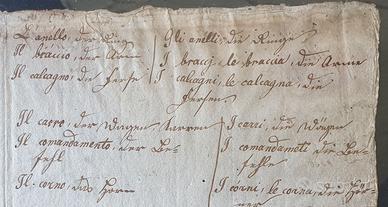 L'anello, der Ring
Il braccio, der Arm
Il calcagno, die Ferse
Gli anelli, die Ringe
I bracci, le braccia, die Arme
I calcagni, le calcagna, die
Fersen
Il carro, der Wagen, Karren
Il comandamento, der Be=
fehl
Il corno, das Horn
I carri, die Wägen
I comandameti die Be=
fehle
I corni, le corna, die Hör=
ner